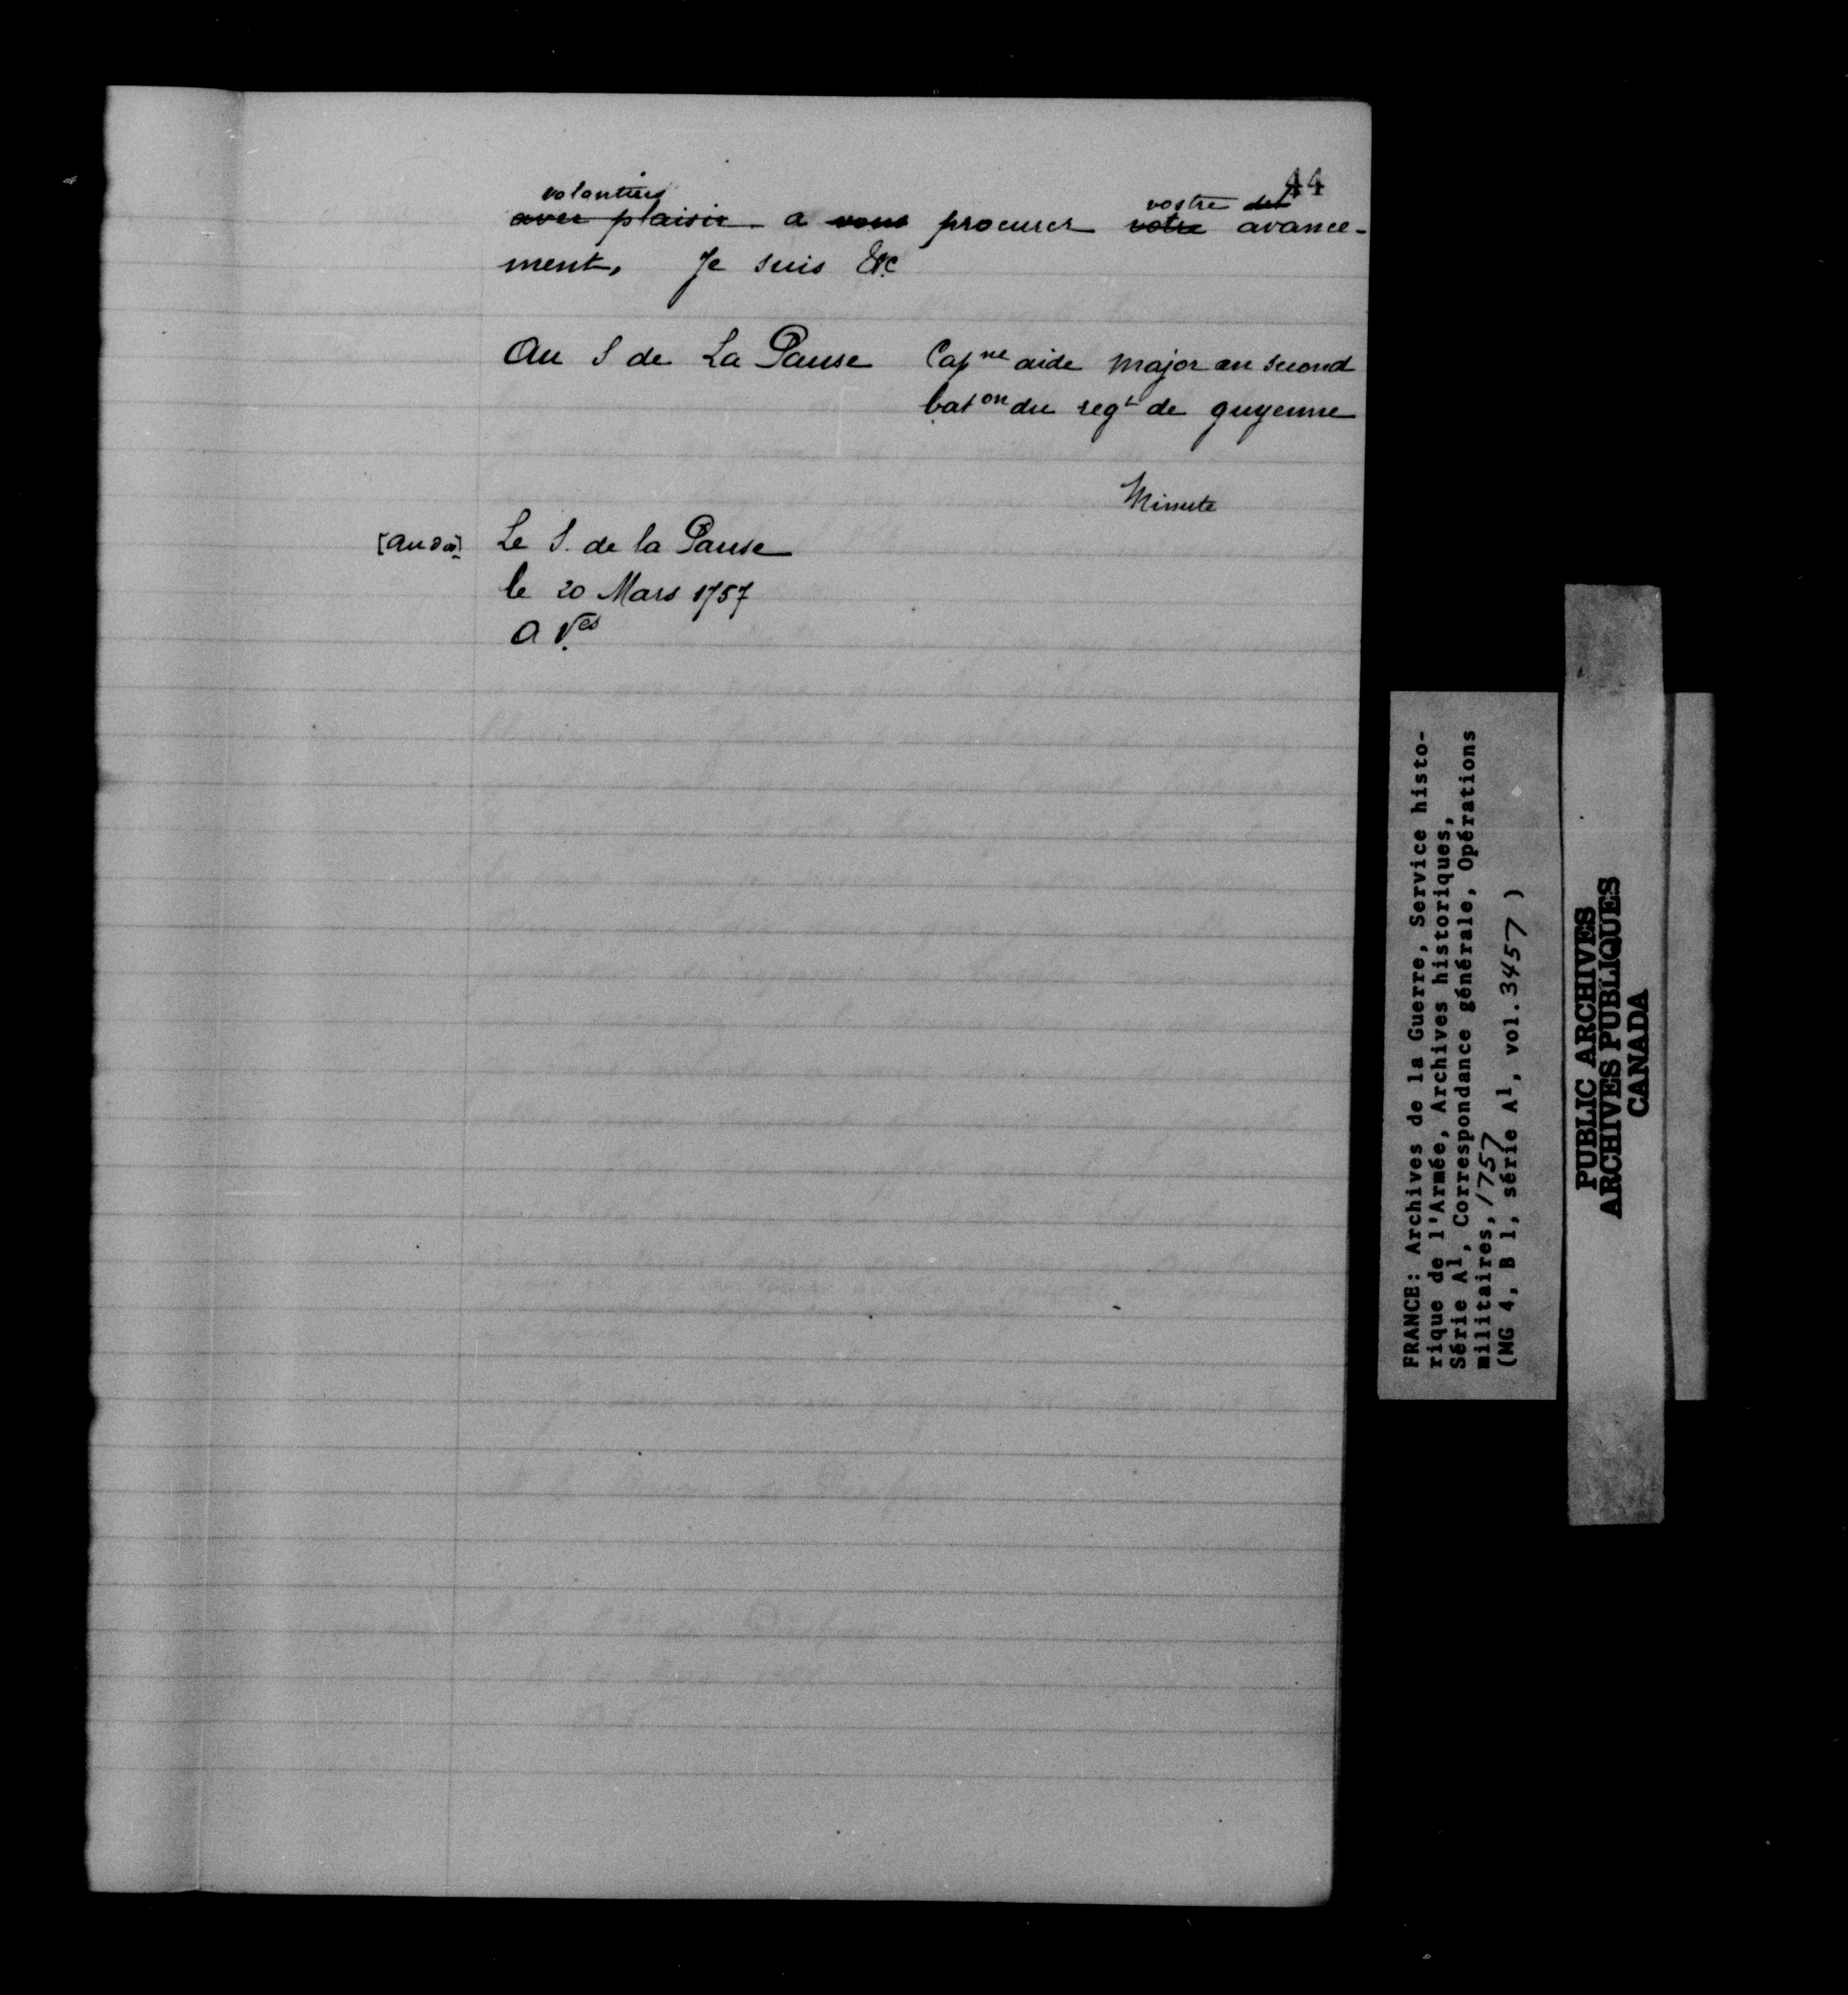 44
volontiers vostre
avec plaisir a vous procurer votre avance-
ment, Je suis &c
Au S de La Pause Capne aide major au second
baton du regt de guyenne
Minute
[au dos] Le S. de la Pause
le 20 Mars 1757
A Ves
FRANCE: Archives de la Guerre, Service histo-
rique de l'Armée, Archives historiques,
Série A1, Correspondance générale, Opérations
militaires, 1757
(MG 4, B 1, série A1, vol. 3457 )
PUBLIC ARCHIVES
ARCHIVES PUBLIQUES
CANADA